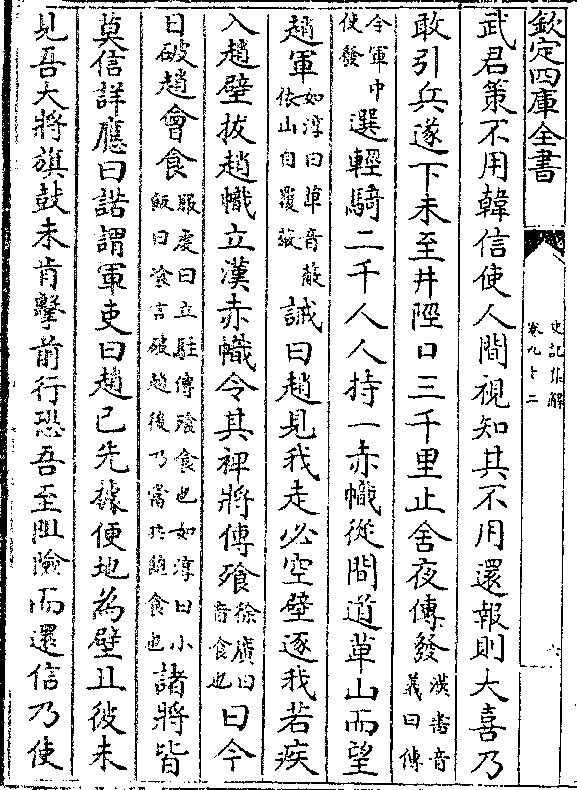 欽定四庫全書
史記集解
卷九十二
六
武君策不用韓信使人間視知其不用還報則大喜乃
敢引兵遂下未至井陘口三千里止舍夜傳發漢書音義曰傳
令軍中使發選輕騎二千人人持一赤幟從間道萆山而望
趙軍如淳曰萆音蔽依山自覆蔽誡曰趙見我走必空壁逐我若疾
入趙壁拔趙幟立漢赤幟令其裨將傳飱徐廣曰音食也曰今
日破趙會食服虔曰立駐傳飱食也如淳曰小飯曰飱言破趙後乃當共飽食也諸將皆
莫信詳應曰諾謂軍吏曰趙已先據便地為壁且彼未
見吾大將旗鼓未肯擊前行恐吾至阻險而還信乃使